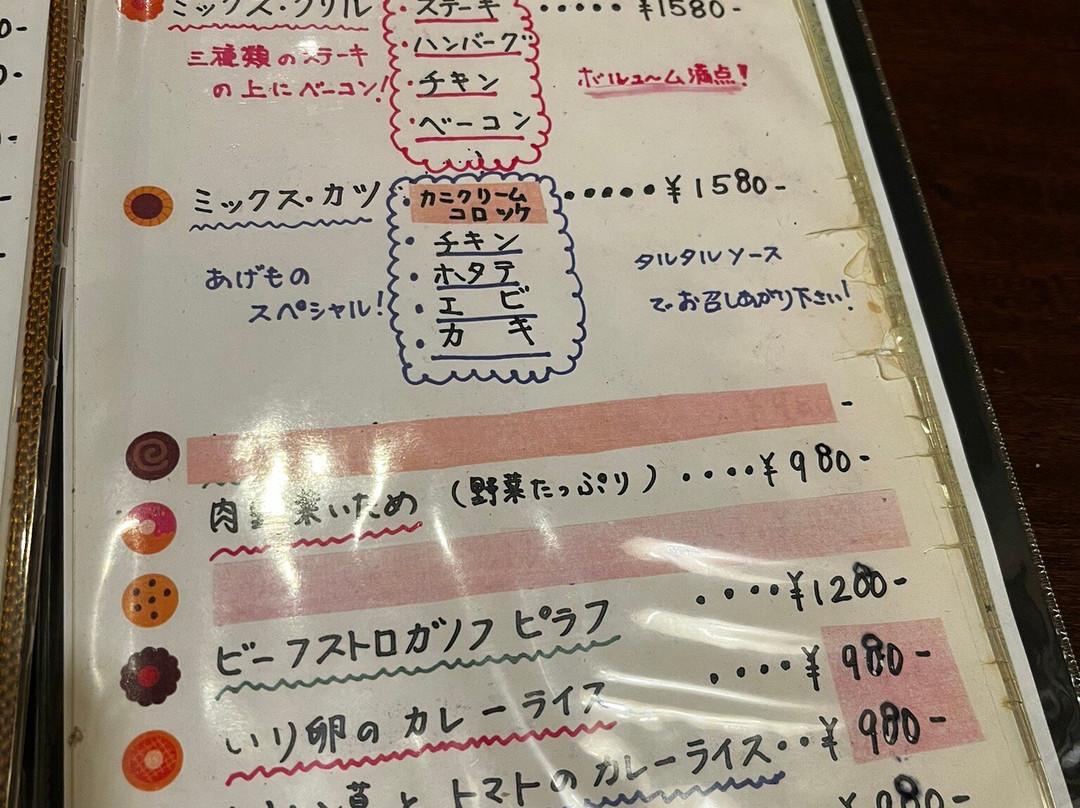 ミックス・グリル ・ステーキ ・・・・・ ¥1580-
・ハンバーグ
三種類のステーキ
の上にベーコン!
・チキン
・ベーコン
ボリューム満点!
ミックス・カツ ・カニクリーム
コロッケ ・・・・・¥1580-
・チキン
・ホタテ
・エビ
・カキ
あげもの
スペシャル!
タルタルソース
でお召しあがり下さい!
肉野菜いため (野菜たっぷり) ・・・・¥980-
ビーフストロガノフ ピラフ ・・・・¥1200-
いり卵の カレーライス ・・・・¥980-
と トマトの カレーライス・・¥980-